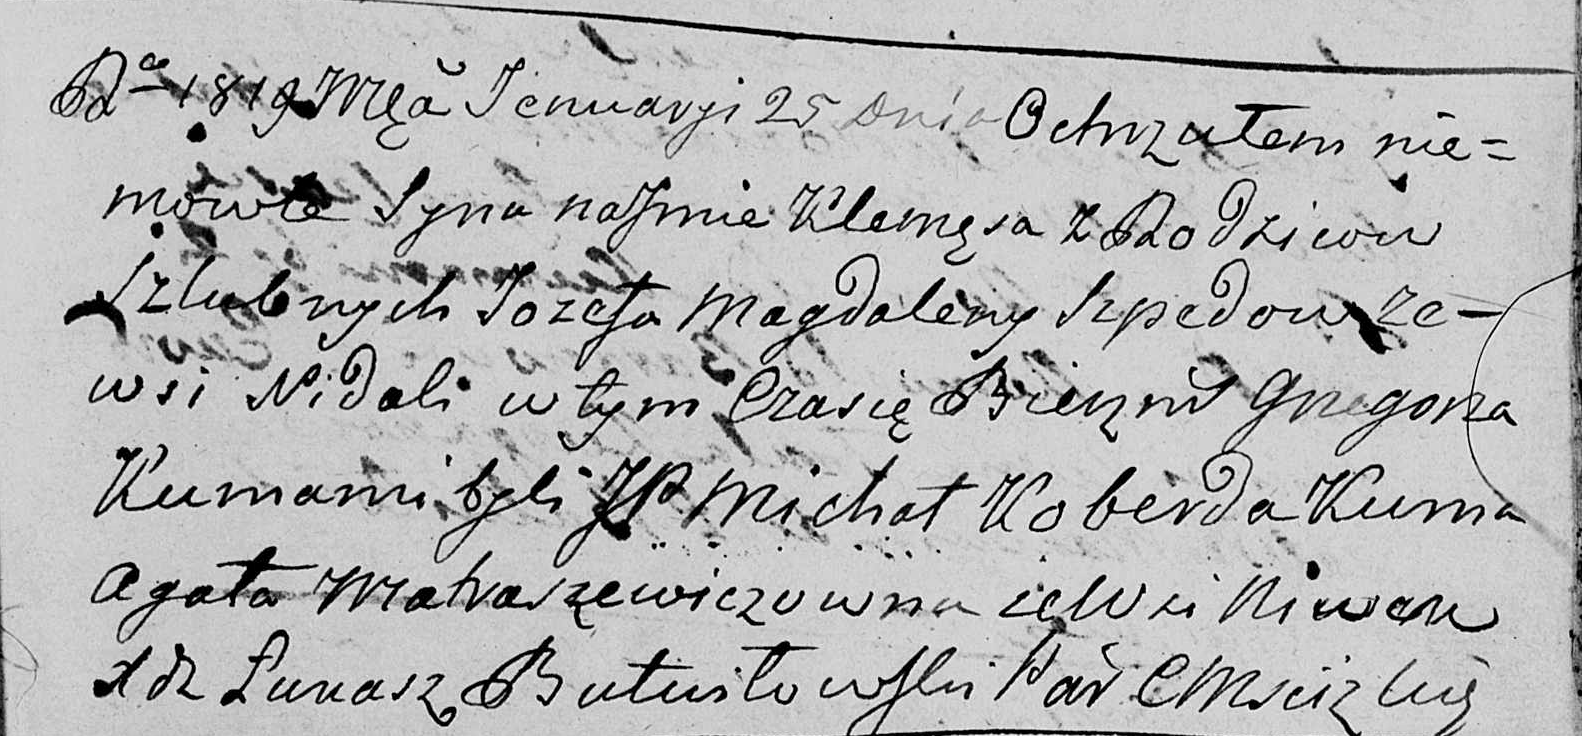 Rᵃ 1819 Męă Jenuaryi 25 Dnia Ochrzułem nie=
mowle Syna na Jmie Klemęsa z Rodziców
Szlubnych Jozefa Magdaleny Szpedow ze-
wsi Nidali w tym Czasię Grzegorza
Kumami byli JP Michał Koberda Kuma
Agata Matraszewiczowna ze Wsi
Łukasz Butwiłowski Par